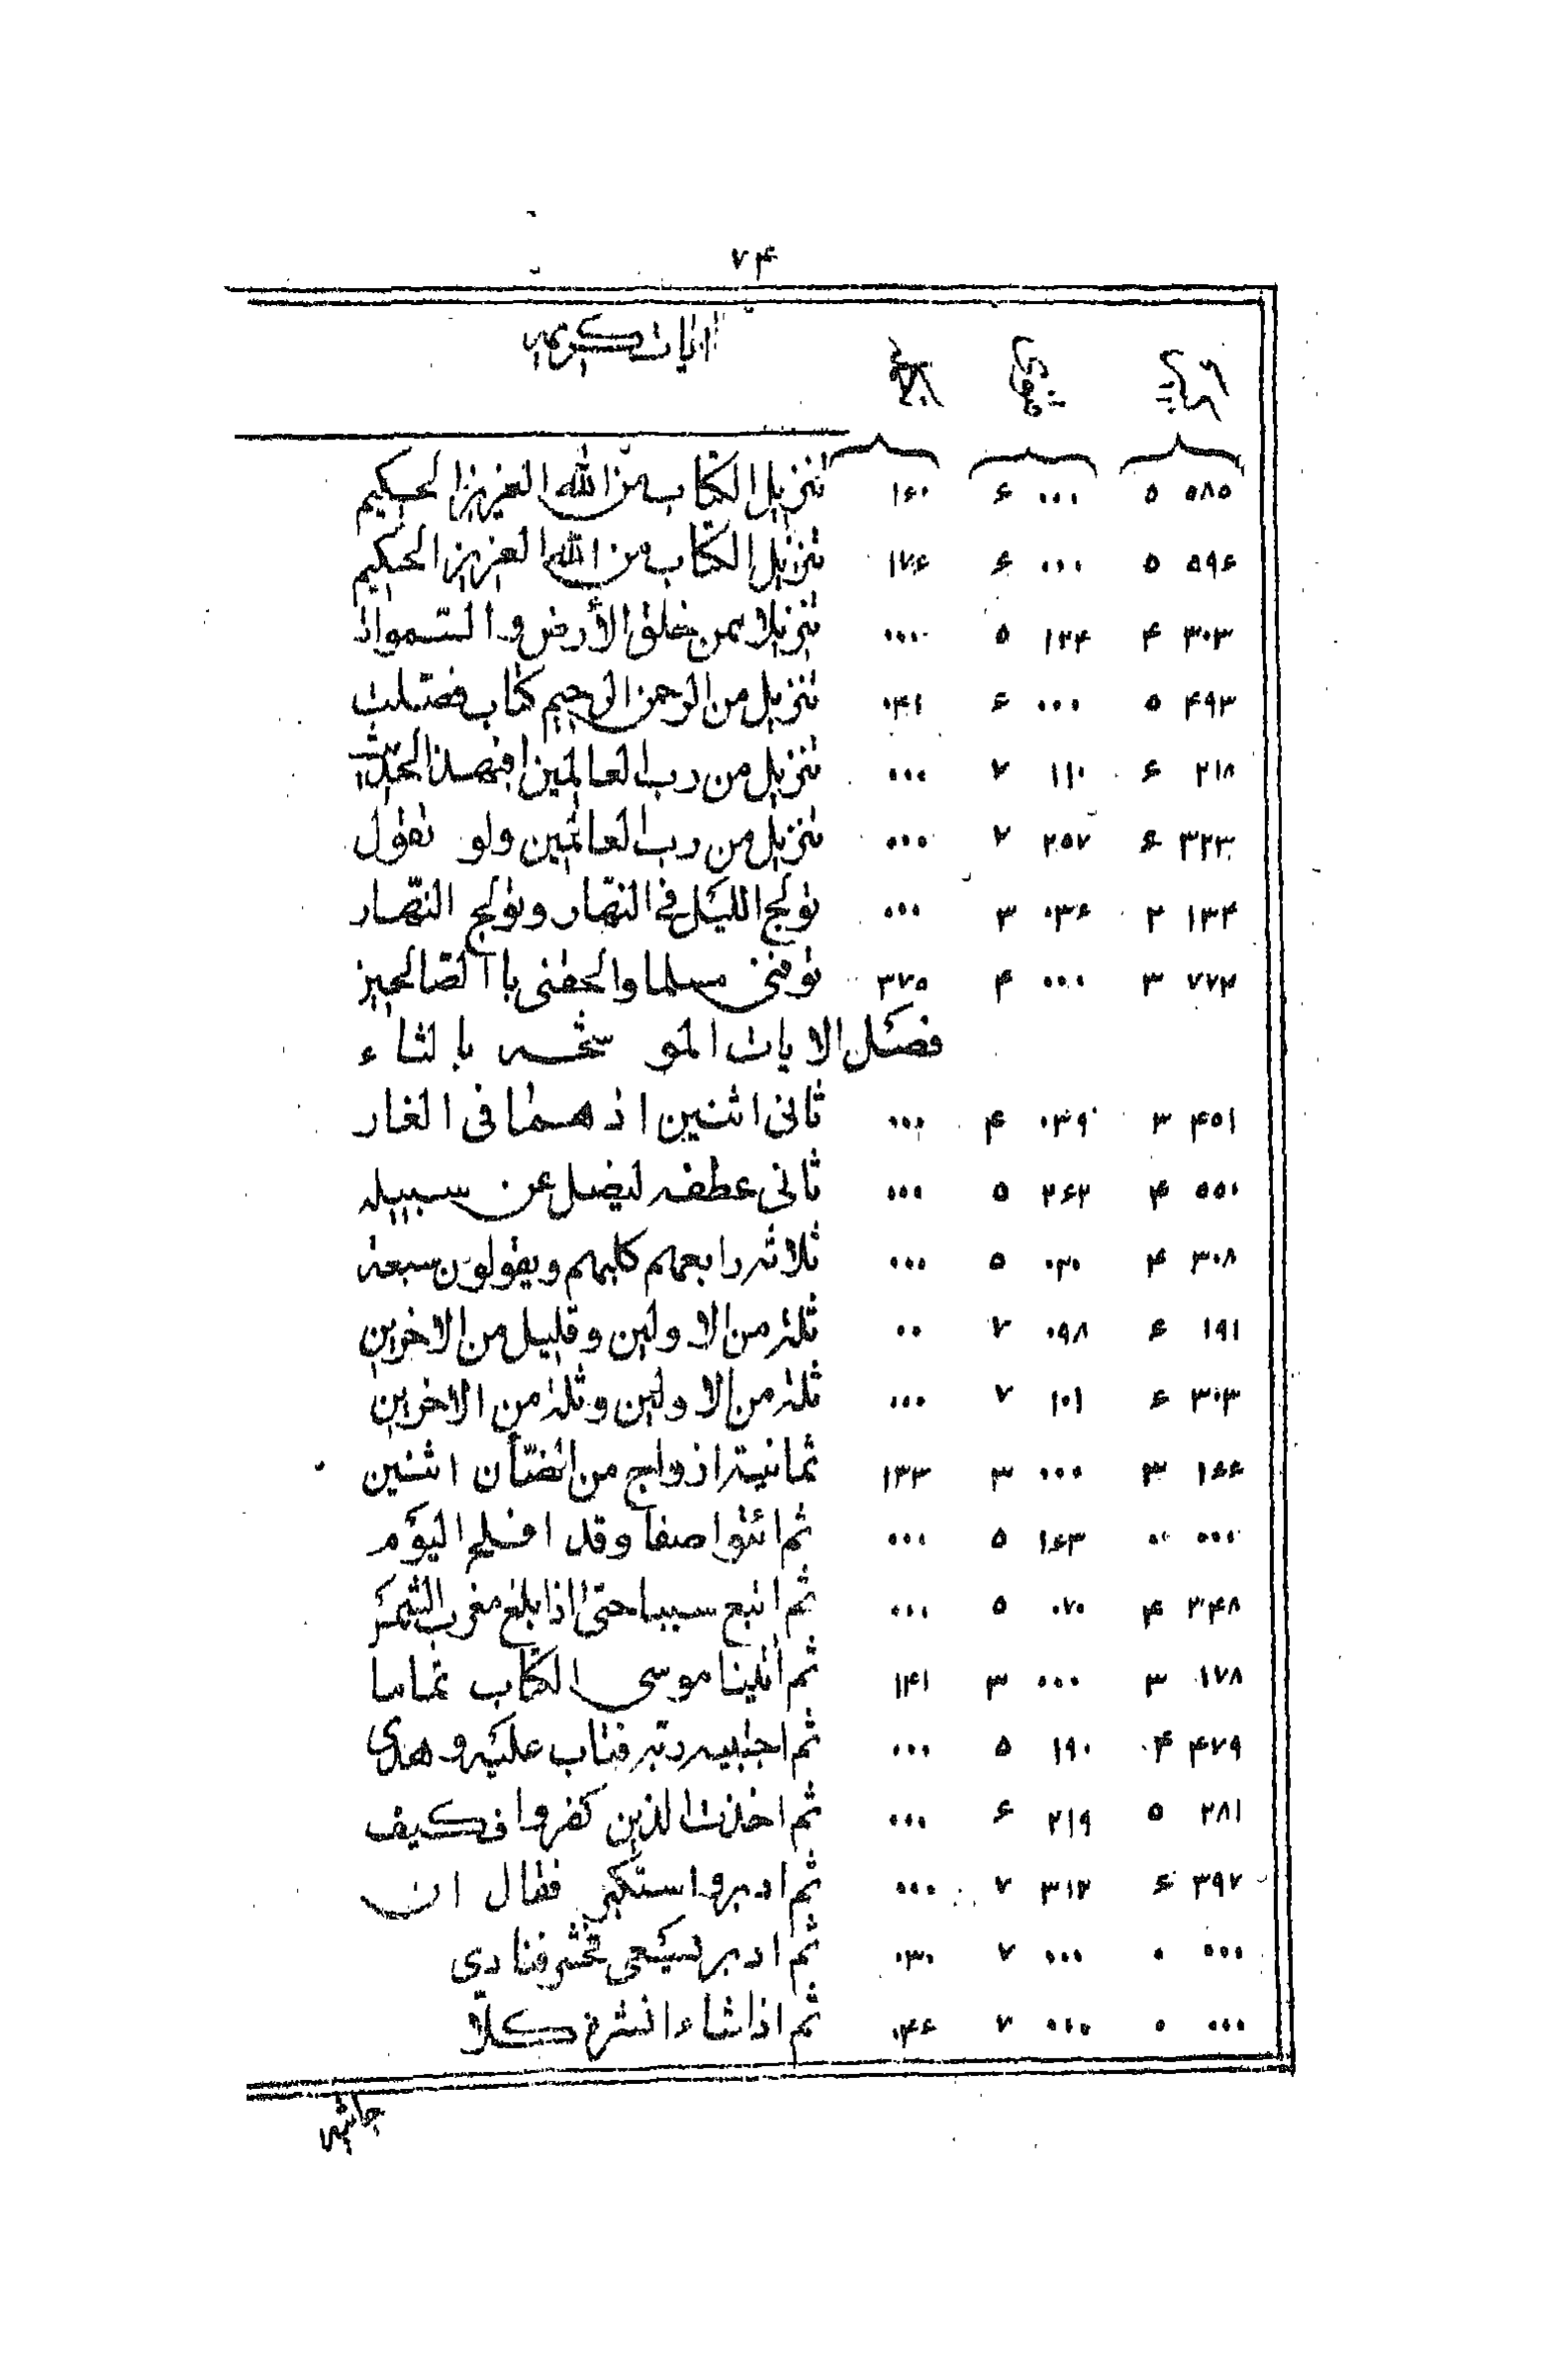 ۷۴
ایات کریمه
۵۸۵ ۵ ۰۰۰ ۶ ۱۶۰ تنزیل الکتاب من الله العزیز الحکیم
۵۹۶ ۵ ۰۰۰ ۶ ۱۷۶ تنزیل الکتاب من الله العزیز الحکیم
۳۰۳ ۴ ۱۲۴ ۵ ۰۰۰ تنزیلا ممن خلق الأرض و السموات
۴۹۳ ۵ ۰۰۰ ۶ ۰۴۱ تنزیل من الرحمن الرحیم کتاب فصلت
۲۱۸ ۶ ۱۱۰ ۷ ۰۰۰ تنزیل من رب العالمین افبهذا الحدیث
۳۲۳ ۶ ۲۵۷ ۷ ۰۰۰ تنزیل من رب العالمین ولو تقول
۱۳۴ ۲ ۰۳۶ ۳ ۰۰۰ تولج اللیل فی النهار و تولج النهار
۷۷۲ ۳ ۰۰۰ ۴ ۳۷۵ توفنی مسلما والحقنی باالصالحین
فصل الایات الموشحه بالثاء
۴۵۱ ۳ ۰۳۹ ۴ ۰۰۰ ثانی اثنین اذ هما فی الغار
۵۵۰ ۴ ۲۶۲ ۵ ۰۰۰ ثانی عطفه لیضل عن سبیله
۳۰۸ ۴ ۰۳۰ ۵ ۰۰۰ ثلاثه رابعهم کلبهم ویقولون سبعة
۱۹۱ ۶ ۰۹۸ ۷ ۰۰ ثلة من الاولین وقلیل من الاخرین
۳۰۳ ۶ ۱۰۱ ۷ ۰۰۰ ثلة من الاولین وثلة من الاخرین
۱۶۶ ۳ ۰۰۰ ۳ ۱۳۳ ثمانیة ازواج من الضأن اثنین
۰۰۰ ۰۰ ۱۶۳ ۵ ۰۰۰ ثم ائتوا صفا وقد افلح الیوم
۳۴۸ ۴ ۰۷۰ ۵ ۰۰۰ ثم اتبع سببا حتی اذا بلغ مغرب الشمس
۱۷۸ ۳ ۰۰۰ ۳ ۱۴۱ ثم اتینا موسی الکتاب تماما
۴۷۹ ۴ ۱۹۰ ۵ ۰۰۰ ثم اجتبیه ربه فتاب علیه وهدی
۲۸۱ ۵ ۲۱۹ ۶ ۰۰۰ ثم اخذت الذین کفروا فکیف
۳۹۷ ۶ ۳۱۲ ۷ ۰۰۰ ثم ادبر واستکبر فقال ان
۰۰۰ ۰ ۰۰۰ ۷ ۰۳۰ ثم ادبر یسعی فحشر فنادی
۰۰۰ ۰ ۰۰۰ ۷ ۰۴۶ ثم اذا شاء انشره کلا